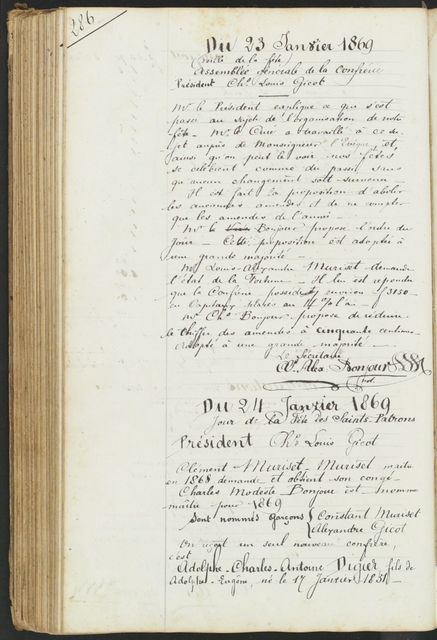 286
Du 23 Janvier 1869
(veille de la fête)
Assemblée générale de la Confrérie
Président Chs Louis Gicot
Mr le Président explique ce qui s'est
passé au sujet de l'organisation de notre
fête - Mr le Curé a travaillé à ce su-
jet auprès de Monseigneur l'Evêque, et,
ainsi qu'on peut le voir nos fêtes
se célèbrent comme du passé sans
qu'aucun changement soit survenu
Il est fait la proposition d'abolir
les anciennes amendes et de ne compter
que les amendes de l'année -
Mr le Bonjour propose l'ordre du
jour - Cette proposition est adoptée à
une grande majorité -
Mr Louis-Alexandre Muriset demande
l'état de la Fortune - Il lui est répondu
que la Confrérie possède environ f 3150 -
en Capitaux placés au
Mr Chs Bonjour propose de réduire
le chiffre des amendes à cinquante centimes
Adopté à une grande majorité -
Le Secrétaire
Alex Bonjour
Du 24 Janvier 1869
Jour de la Fête des Saints-Patrons
Président Chs Louis Gicot
Clément Muriset, Muriset maître
en 1868 demande et obtient son congé -
Charles Modeste Bonjour est nommé
maître pour 1869
Sont nommés garçons { Constant Muriset
Alexandre Gicot
On reçoit un seul nouveau confrère,
c'est
Adolphe-Charles-Antoine Digier fils de
Adolphe-Eugène, né le 17 Janvier 1851 -